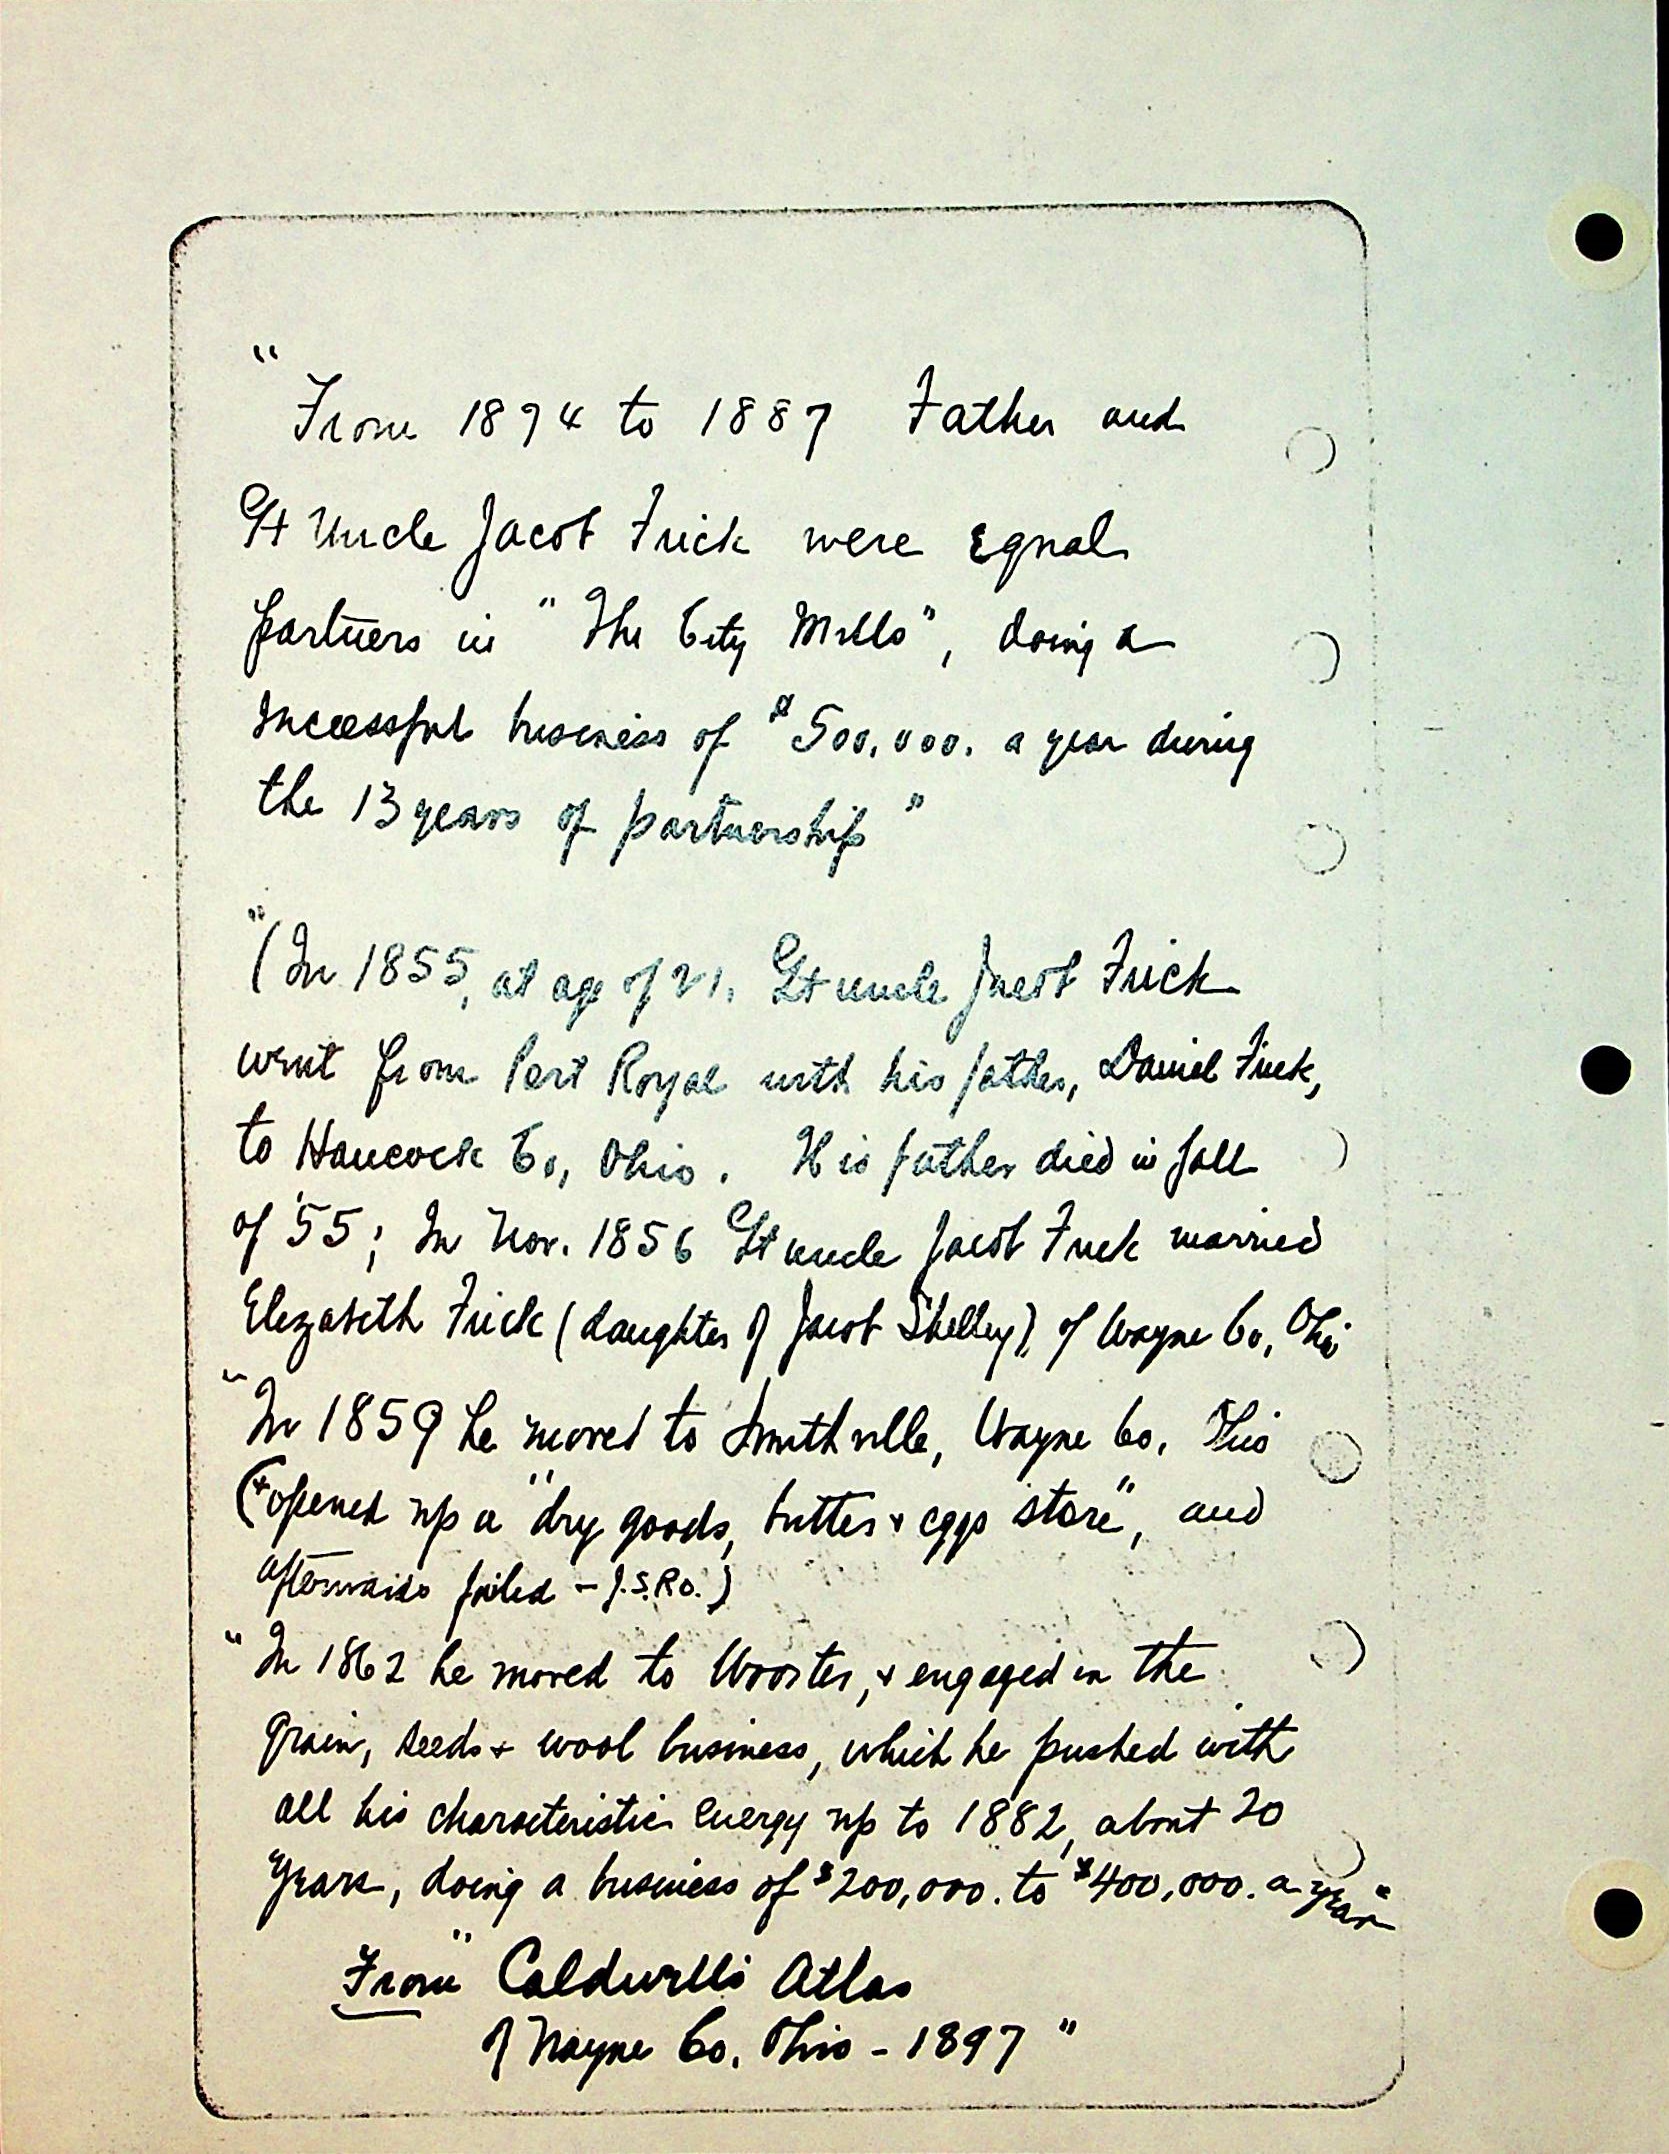 "
From 1874 to 1887 Father and
Gt Uncle Jacob Frick were equal
partners in "The City Mills", doing a
successful business of $500,000. a year during
the 13 years of partnership"
"(In 1855, at age of 21, Gt uncle Jacob Frick
went from Port Royal with his father, Daniel Frick,
to Hancock Co, Ohio. His father died in fall
of '55; In Nov. 1856 Gt uncle Jacob Frick married
Elizabeth Frick (daughter of Jacob Shelley), of Wayne Co, Ohio
"In 1859 he moved to Smithville, Wayne Co, Ohio
(*opened up a "dry goods, butter & eggs store", and
afterwards failed - J.S.Ro.)
"In 1862 he moved to Wooster, & engaged in the
grain, seeds & wool business, which he pushed with
all his characteristic energy up to 1882, about 20
years, doing a business of $200,000. to $400,000. a year"
From "Caldwell's Atlas
of Wayne Co. Ohio - 1897"